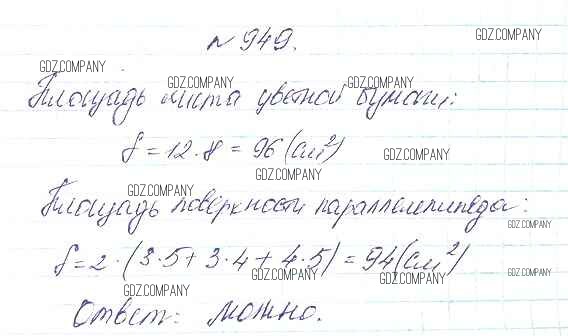 № 949.
GDZ.COMPANY
GDZ.COMPANY
GDZ.COMPANY
GDZ.COMPANY
Площадь листа цветной бумаги:
S = 12 · 8 = 96 (см²)
GDZ.COMPANY
GDZ.COMPANY
GDZ.COMPANY
Площадь поверхности параллелепипеда:
GDZ.COMPANY
S = 2 · (3·5 + 3·4 + 4·5) = 94 (см²)
GDZ.COMPANY
GDZ.COMPANY
GDZ.COMPANY
GDZ.COMPANY
Ответ: можно.